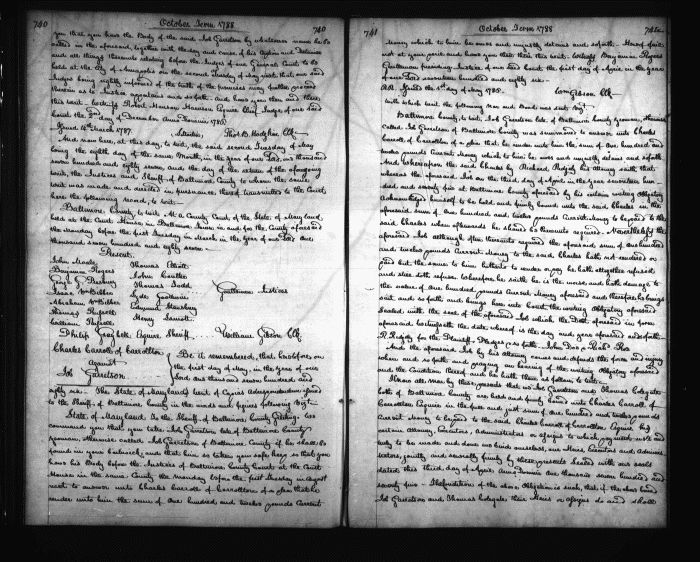 740 October Term 1788 740
you that you have the Body of the said Job Garretson by whatsoever name he be
called in the aforesaid, together with the day and cause of his Caption and Detainer
and all things thereunto relating before the Judges of our General Court to be
held at the City of Annapolis on the second Tuesday of May next that our said
Judges being rightly informed of the truth of the premises may further proceed
therein as to Justice appertains and so forth and have you then and there
this writ
hand the 2nd day of December Anno Domini 1786
Issued 16 March 1787.
And now here, at this day, to wit, the said second Tuesday of May
being the eighth day of the same Month, in the year of our Lord, one thousand
seven hundred and eighty seven and the day of the return of the aforegoing
writ, the Justices and Sheriff of Baltimore County to whom the same
writ was made and directed in pursuance thereof transmitted to the Court
here the following record, to wit
Baltimore County, to wit, At a County Court of the State of Maryland,
held at the Court House in Baltimore Town in and for the County aforesaid
the Monday before the first Tuesday in March in the year of our Lord one
thousand seven hundred and eighty seven
Present.
John Moale
Benjamin Rogers
Thomas Elliott
Thomas Russell
William Russell
Gentlemen Justices
Philip Esquire Sheriff William Gibson Clk
Charles Carroll of Carrollton
against
Job Garretson
Be it remembered, that heretofore, on
the first day of May, in the year of our
Lord one thousand seven hundred and
eighty six The State of Maryland's writ of Capias
to the Sheriff of Baltimore County in the words and figures following Viz
State of Maryland To the Sheriff of Baltimore County Greeting. We
command you that you take Job Garretson late of Baltimore County
Yeoman, otherwise called Job Garretson of Baltimore County if he shall be
found in your bailiwick, and that him so taken you safe keep so that you
have his Body before the Justices of Baltimore County Court at the Court
House in the same County the Monday before the first Tuesday in August
next to answer unto Charles Carroll of Carrollton of a plea that he
render unto him the sum of One hundred and twelve pounds Current
741 October Term 1788
Money which to him he owes and unjustly detains and so forth. Hereof fail
not at your peril and have you then there this writ. Witness Benjamin Rogers
Gentleman presiding Justice of our said Court the first day of April in the year
of our Lord seventeen hundred and eighty six.
Issued the 1st day of May 1786 Wm Gibson Clk
with which writ the following
Baltimore County, to wit, Job Garretson late of Baltimore County yeoman, otherwise
called Job Garretson of Baltimore County was summoned to answer unto Charles
Carroll of Carrollton of a plea that he render unto him the sum of One hundred and
twelve pounds Current Money which to him he owes and unjustly detains and so forth
And whereupon the said Charles by Richard Ridgely his attorney saith that
whereas the aforesaid Job on the third day of April in the year seventeen hundred
and seventy five at Baltimore County aforesaid by his certain writing Obligatory
Acknowledged himself to be held and firmly bound unto the said Charles in the
aforesaid sum of One hundred and twelve pounds Current Money to be paid to the
said Charles when afterwards he should be thereunto required. Nevertheless the
aforesaid Job although often thereunto required the aforesaid sum of One hundred
and twelve pounds Current Money to the said Charles hath not rendered or
paid but the same to him hitherto to render or pay he hath altogether refused
and still doth refuse. Wherefore he saith he is the worse and hath damage to
the value of One hundred pounds Current Money aforesaid and therefore he brings
suit and so forth and brings here into Court the writing Obligatory aforesaid
Sealed with the seal of the aforesaid Job which the Debt aforesaid in form
aforesaid testifieth the date whereof is the day and year aforesaid and so forth
R. Ridgely for the Plaintiff. Pledges and so forth John Doe and Richd Roe
And the aforesaid Job by his attorney comes and defends the force and injury
when and so forth and craves hearing of the writing Obligatory aforesaid
and the Condition thereof and he hath them as follows to wit
Know all men by these presents that we Job Garretson and Thomas Colegate
both of Baltimore County are held and firmly bound unto Charles Carroll of
Carrollton Esquire in the full and just sum of One hundred and twelve pounds
Current Money to be paid to the said Charles Carroll of Carrollton Esquire his
certain attorney, Executors, Administrators or assigns to which payment well and
truly to be made and done we bind ourselves, our Heirs, Executors and Administrators,
jointly and severally firmly by these presents Sealed with our seals
dated this third day of April Anno Domini One thousand seven hundred and
seventy five. The Condition of the above Obligation is such, that if the above bound
Job Garretson and Thomas Colegate their Heirs or assigns do and shall